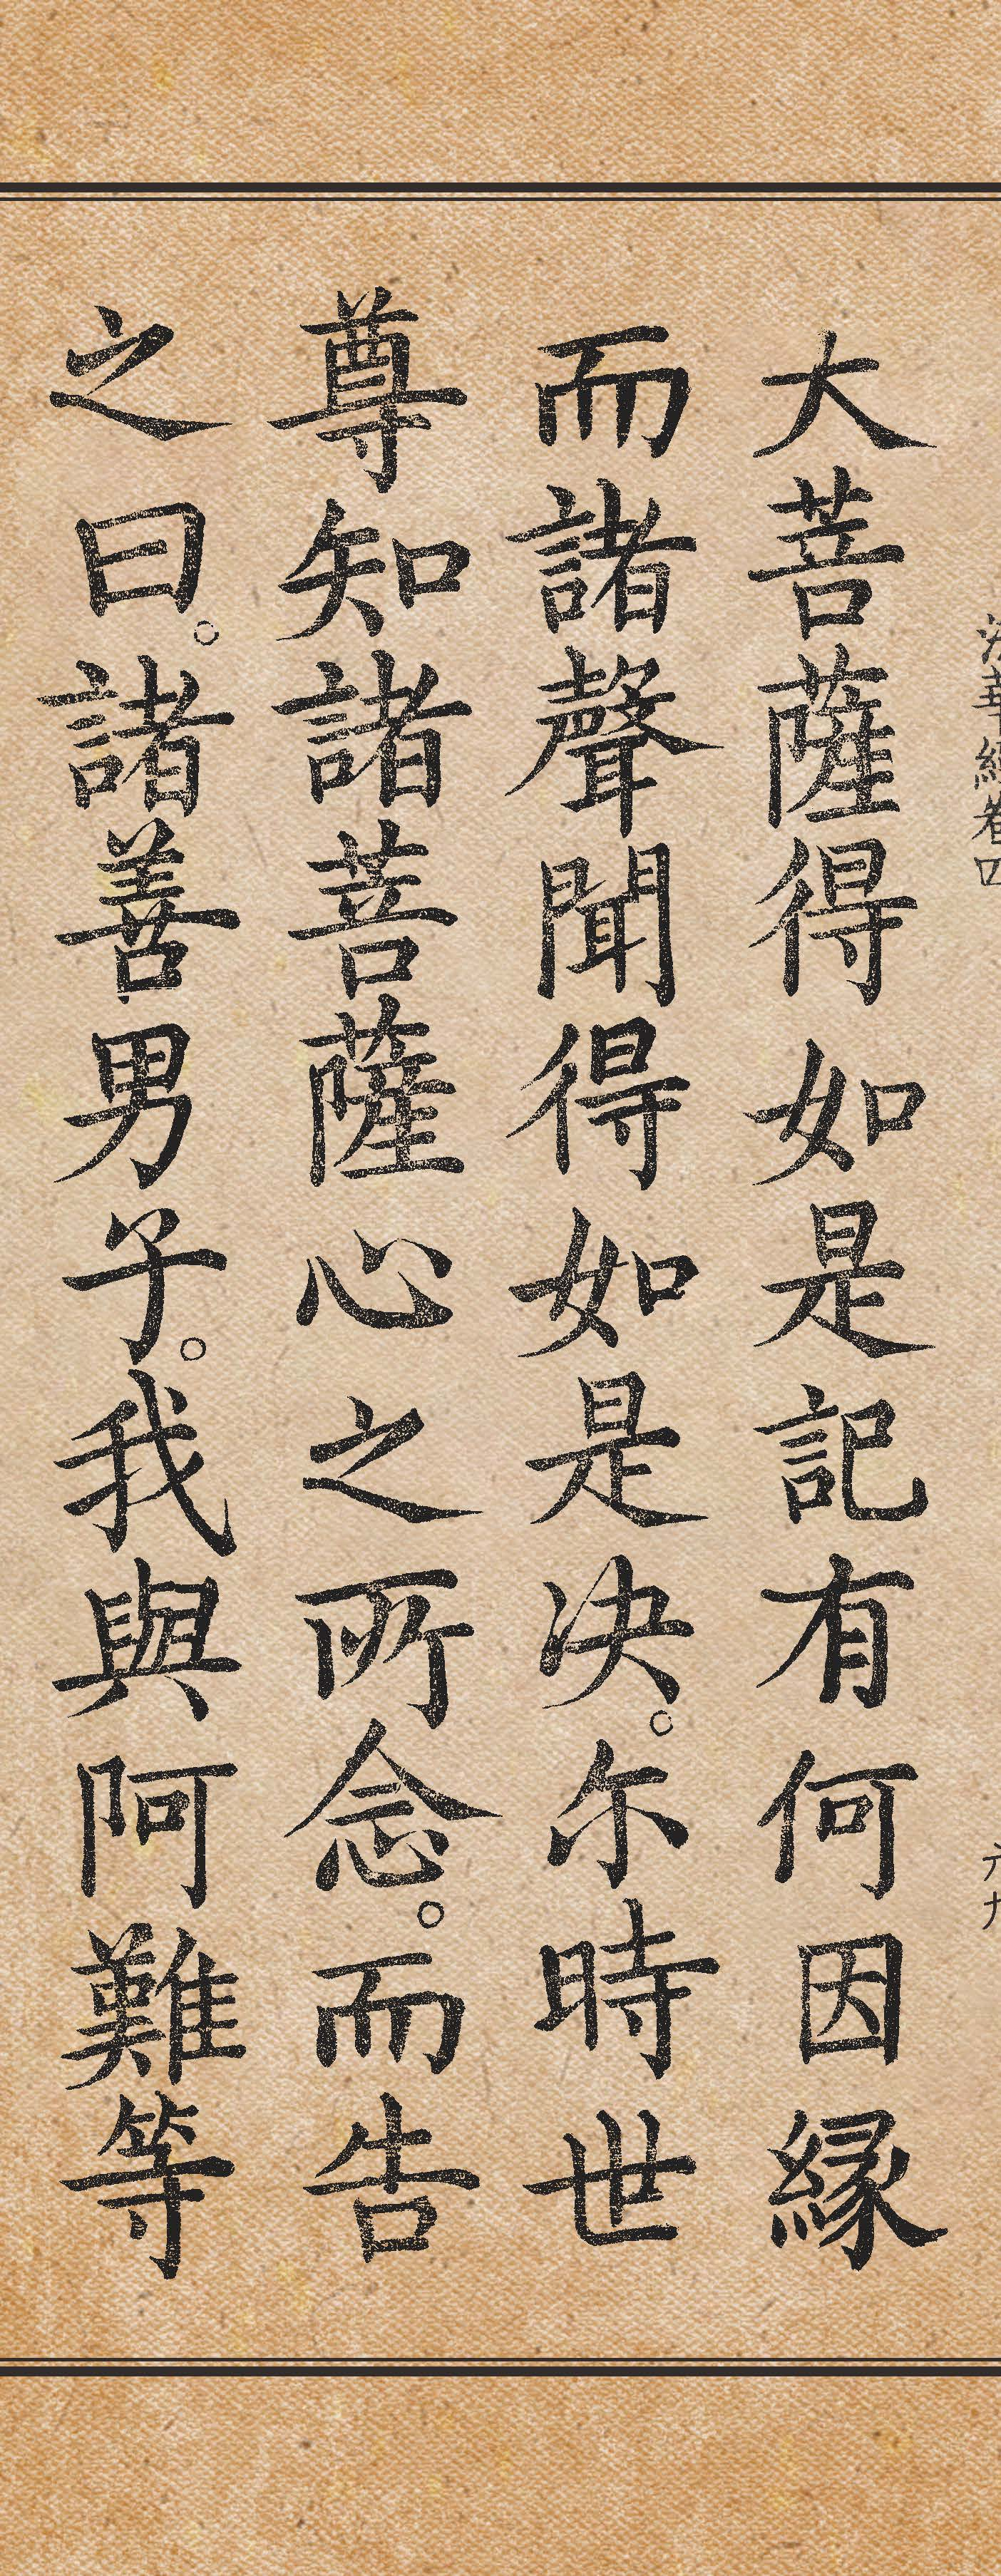 法華經卷四 六九
大菩薩得如是記有何因緣
而諸聲聞得如是決。尒時世
尊知諸菩薩心之所念。而告
之曰。諸善男子。我與阿難等